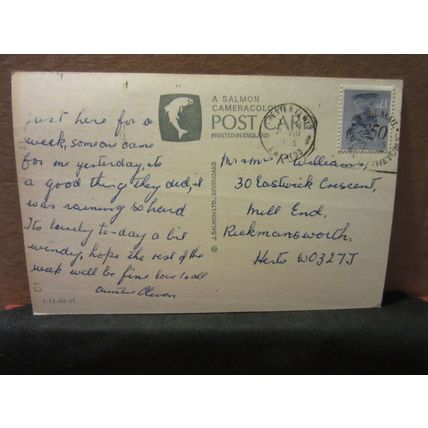 A SALMON
CAMERACOLOUR
POST CARD
PRINTED IN ENGLAND
Just here for a
week, someone came
for me yesterday, its
a good thing they did, it
was raining so hard
Its lovely to-day a bit
windy, hope the rest of the
week will be fine love to all
Auntie Olwen
1-11-04-01
© J. SALMON LTD., SEVENOAKS
Mr & Mrs P. Williams,
30 Eastwick Crescent,
Mill End,
Rickmansworth,
Herts WD32TJ